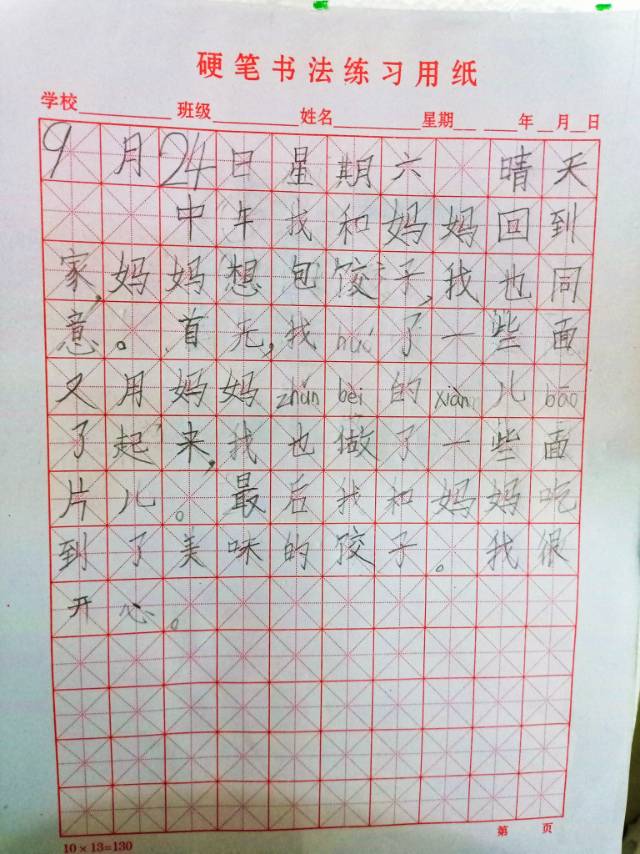 硬笔书法练习用纸
学校 班级 姓名 星期 年 月 日
9月24日星期六 晴天
中午我和妈妈回到
家,妈妈想包饺子,我也同
意。首先,我huó了一些面
又用妈妈zhǔn bèi的xiàn儿bāo
了起来,我也做了一些面
片儿。最后我和妈妈吃
到了美味的饺子。我很
开心。
10×13=130
第 页